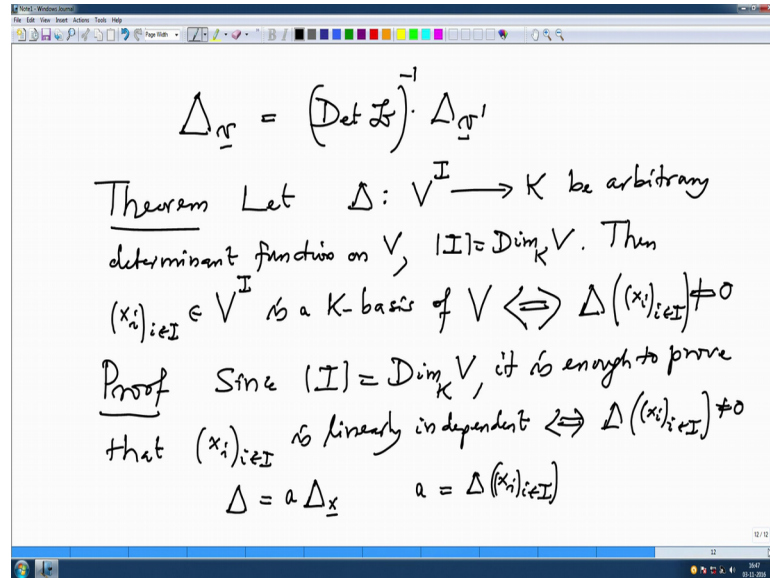 Note1 - Windows Journal
File Edit View Insert Actions Tools Help
Page Width
Δ_v = (Det 𝔅)^{-1} · Δ_v'
Theorem Let Δ : V^I ⟶ K be arbitrary
determinant function on V, |I| = Dim_K V. Then
(x_i)_{i∈I} ∈ V^I is a K-basis of V ⟺ Δ((x_i)_{i∈I}) ≠ 0
Proof Since |I| = Dim_K V, it is enough to prove
that (x_i)_{i∈I} is linearly independent ⟺ Δ((x_i)_{i∈I}) ≠ 0
Δ = a Δ_x a = Δ((x_i)_{i∈I})
12/12
12
16:47
03-11-2016